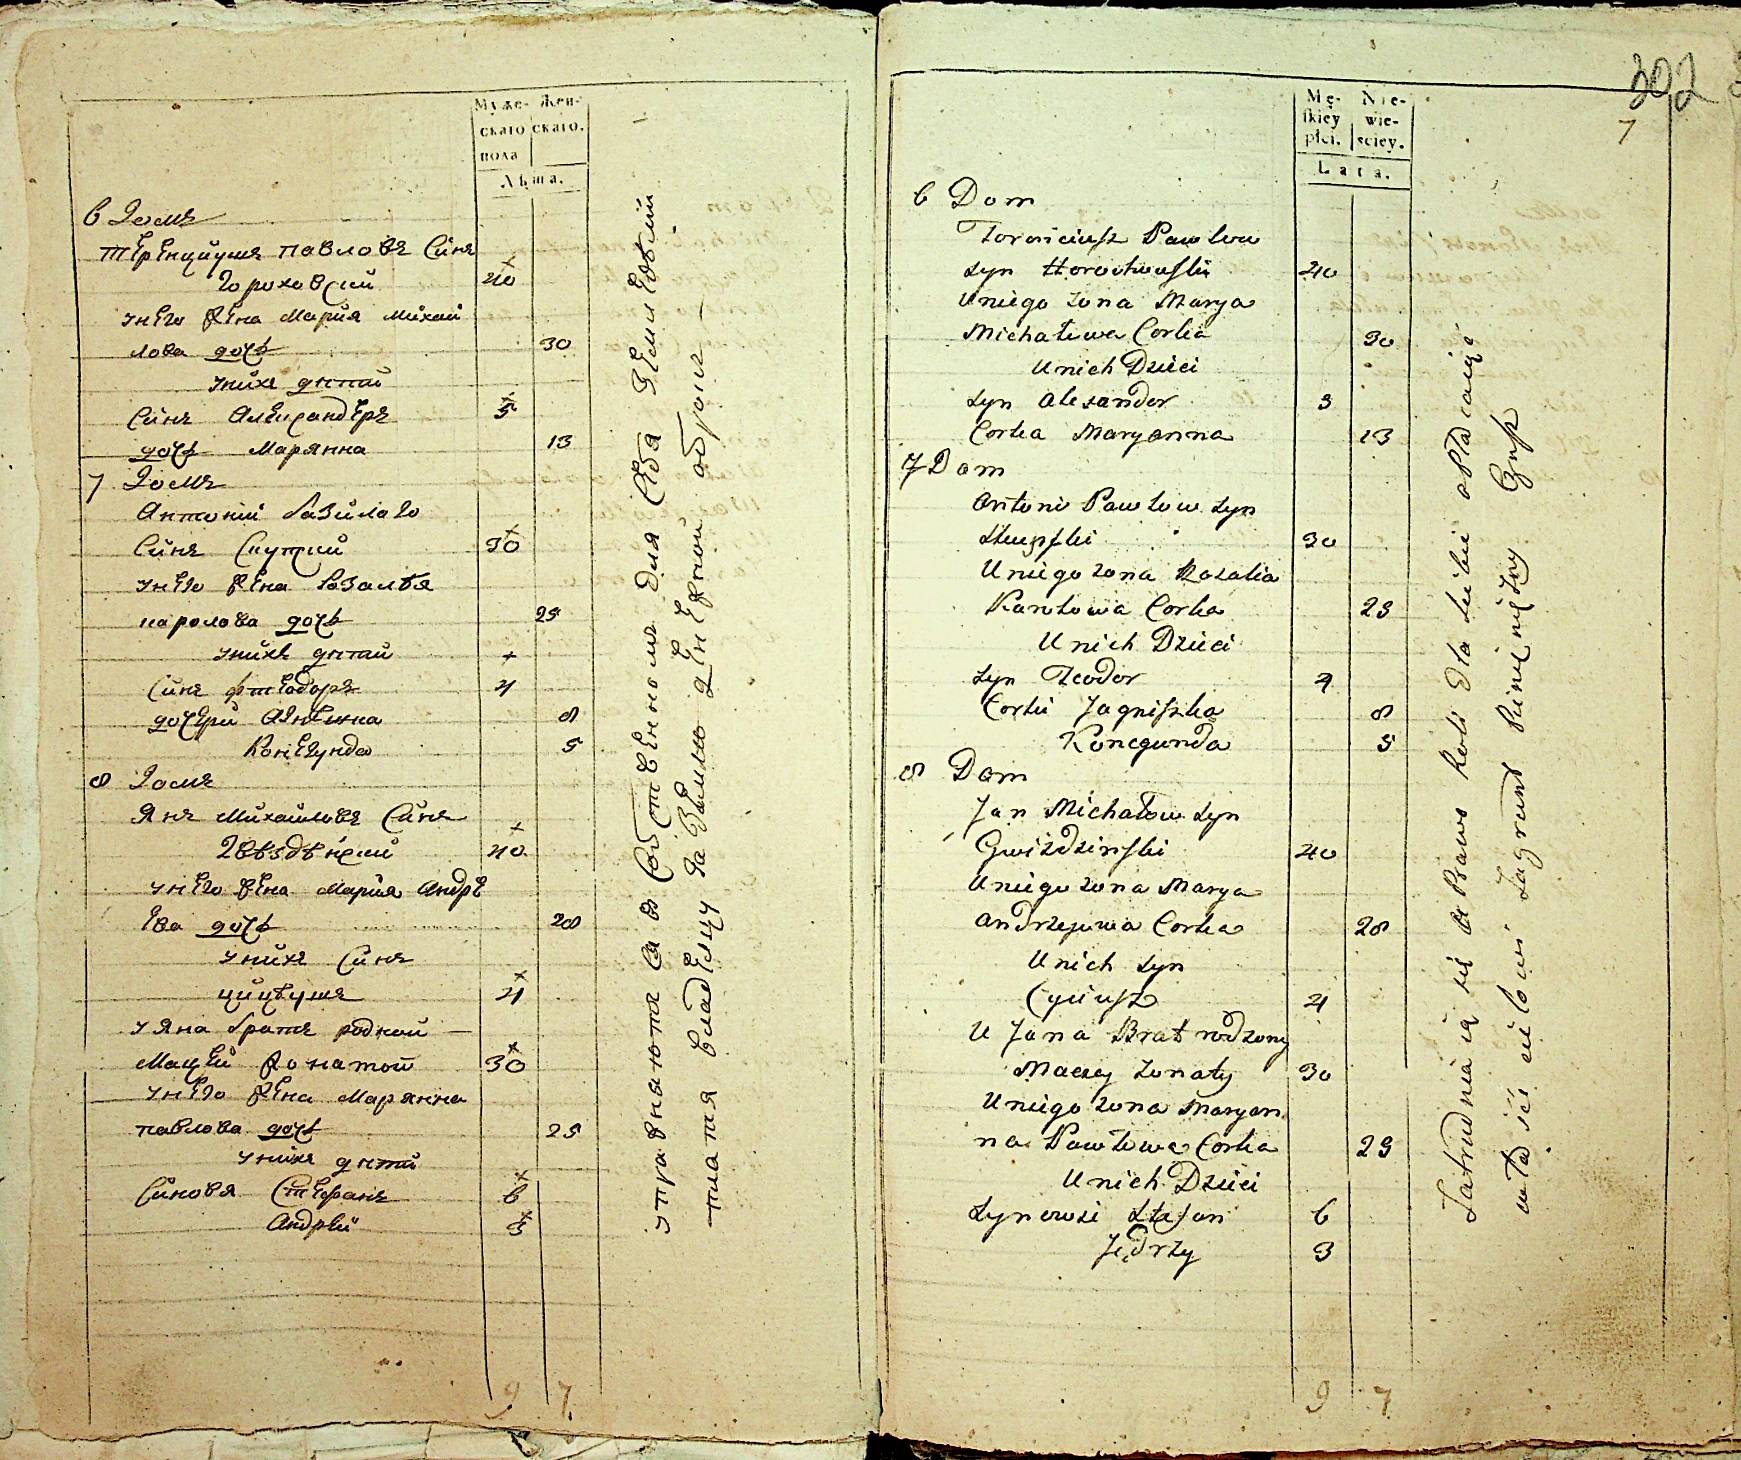 Муже- Жен-
скаго скаго.
пола
Лѣта.
6 Домъ
Теренциушъ Павловъ Синъ
Гороховский 40
унего жена Мария Михай
лова дочь 30
унихъ дѣтай
Синъ Александеръ 5
дочь Марянна 13
7 Домъ
Антоний
Синъ 30
унего жена Розалѣя
каролова дочь 25
унихъ дѣтай
Синъ Фтеодоръ 4
дочери 8
Конегунда 5
8 Домъ
Янъ Михайловъ Синъ
40
унего жена Мария Андре
ева дочь 28
унихъ Синъ
4
у Яна братъ родной
Мацей жонатой 30
унего жена Марянна
павлова дочь 25
унихъ дѣтай
Синовя Стефанъ 6
Андрей 3
9 7
упражняются въ собственномъ для себя
платятъ владелцу за землю денежной оброкъ
302
7
Mę- Nie-
skiey wie-
płci. sciey.
Lata.
6 Dom
Toranciusz Pawłow
Syn Horochowski 40
Uniego żona Marya
Michałowa Corka 30
Unich Dzieci
Syn Alexander 5
Corka Maryanna 13
7 Dom
Antoni Pawłow Syn
30
Uniego żona Rozalia
Karolowa Corka 25
Unich Dzieci
Syn Teodor 4
Corki Jagniszka 8
Konegunda 5
8 Dom
Jan Michałow Syn
Gwiżdzinski 40
Uniego żona Marya
Andrzejowa Corka 28
Unich Syn
4
U Jana Brat rodzony
Maciey żonaty 30
Uniego żona Maryan
na Pawłowa Corka 25
Unich Dzieci
Synowie Stefan 6
Jędrzy 3
9 7
Zatrudniaią się Roli dla siebie opłacaiąc
Zagrunt Pieniężny Czynsz